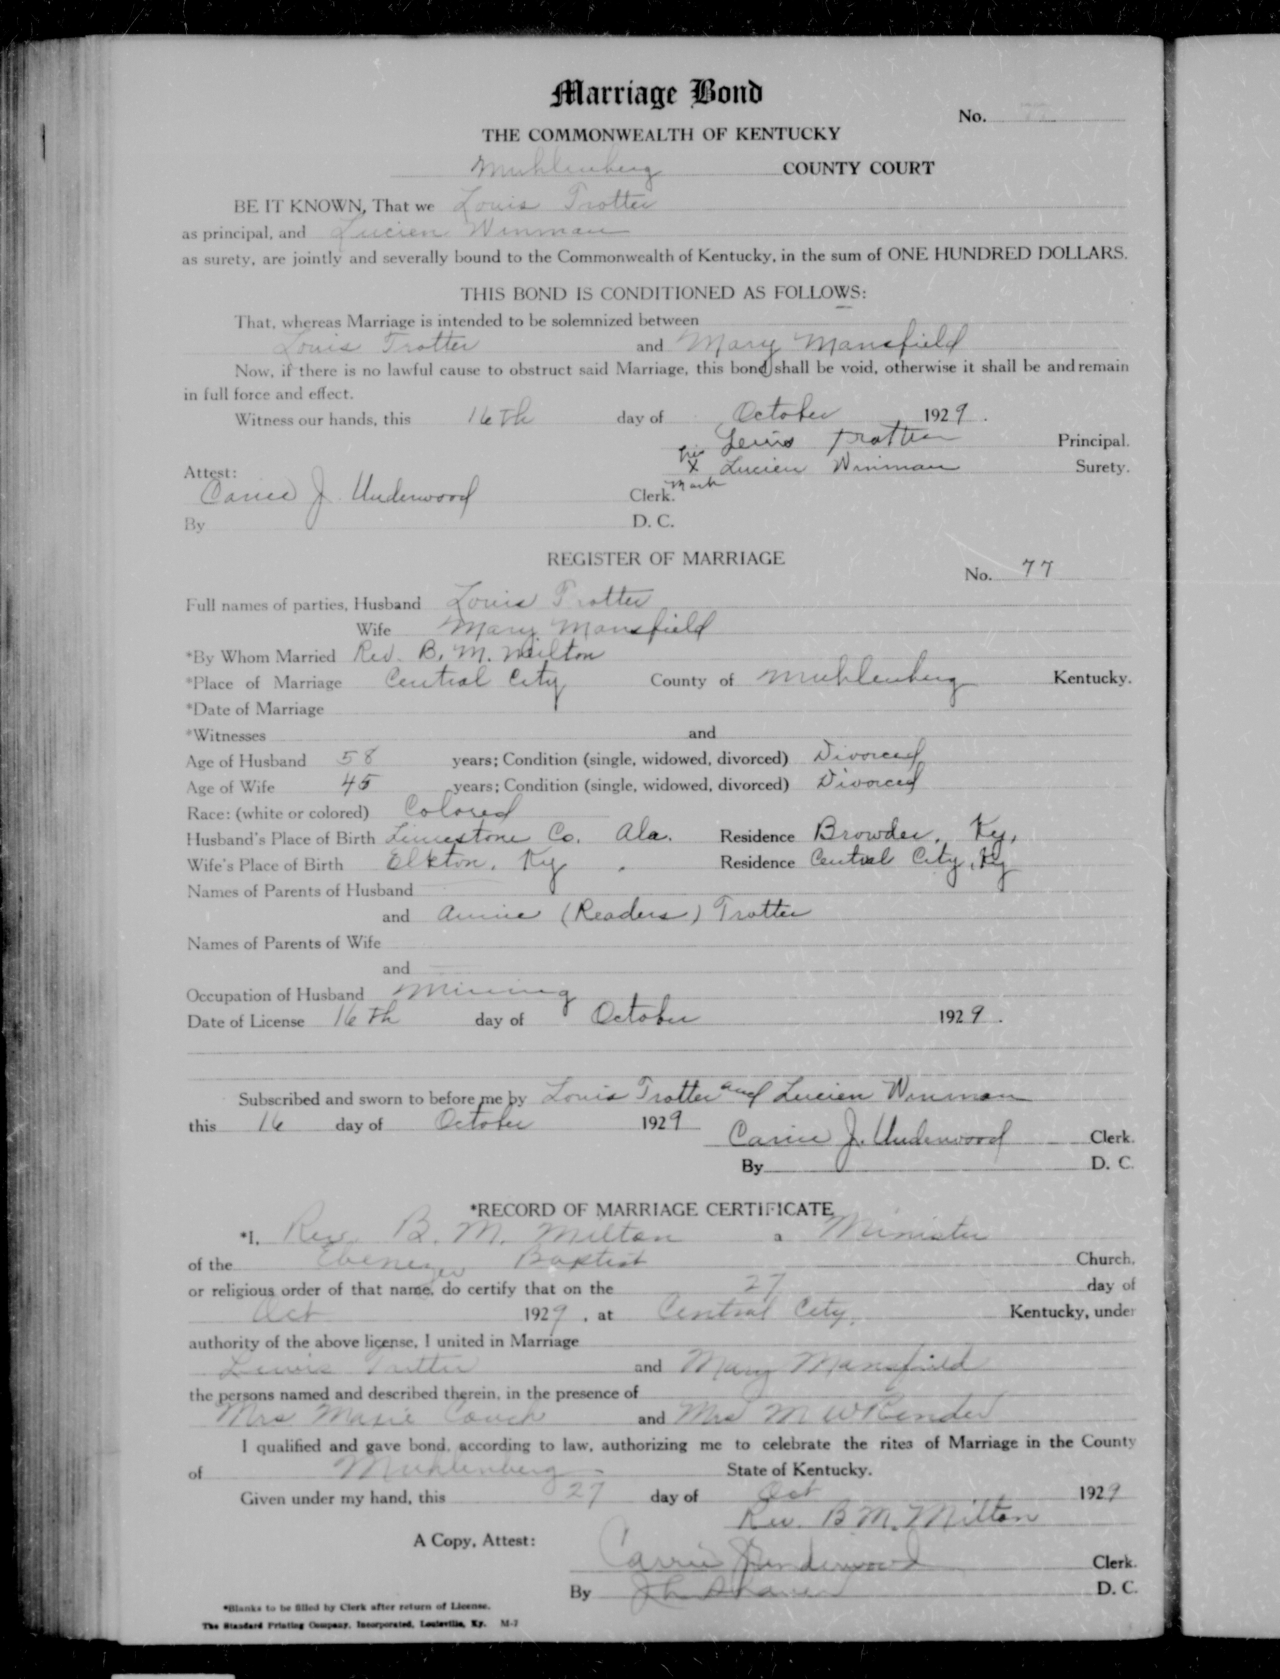 Marriage Bond
No. 77
THE COMMONWEALTH OF KENTUCKY
Muhlenberg COUNTY COURT
BE IT KNOWN, That we Louis Trotter
as principal, and Lucien Winman
as surety, are jointly and severally bound to the Commonwealth of Kentucky, in the sum of ONE HUNDRED DOLLARS.
THIS BOND IS CONDITIONED AS FOLLOWS:
That, whereas Marriage is intended to be solemnized between
Louis Trotter and Mary Mansfield
Now, if there is no lawful cause to obstruct said Marriage, this bond shall be void, otherwise it shall be and remain
in full force and effect.
Witness our hands, this 16th day of October 1929.
Lewis Trotter Principal.
his
Attest: X Lucien Winman Surety.
mark
Carrie J. Underwood Clerk.
By D. C.
REGISTER OF MARRIAGE
No. 77
Full names of parties, Husband Louis Trotter
Wife Mary Mansfield
*By Whom Married Rev. B. M. Milton
*Place of Marriage Central City County of Muhlenberg Kentucky.
*Date of Marriage
*Witnesses and
Age of Husband 58 years; Condition (single, widowed, divorced) Divorced
Age of Wife 45 years; Condition (single, widowed, divorced) Divorced
Race: (white or colored) Colored
Husband's Place of Birth Limestone Co. Ala. Residence Browder, Ky,
Wife's Place of Birth Elkton, Ky. Residence Central City, Ky
Names of Parents of Husband
and Annie (Readers) Trotter
Names of Parents of Wife
and
Occupation of Husband Mining
Date of License 16th day of October 1929.
Subscribed and sworn to before me by Louis Trotter and Lucien Winman
this 16 day of October 1929
Carrie J. Underwood Clerk.
By D. C.
*RECORD OF MARRIAGE CERTIFICATE
*I, Rev. B. M. Milton a Minister
of the Ebenezer Baptist Church,
or religious order of that name, do certify that on the 27 day of
Oct 1929, at Central City, Kentucky, under
authority of the above license, I united in Marriage
Lewis Trotter and Mary Mansfield
the persons named and described therein, in the presence of
Mrs Maxie Couch and Mrs M W Render
I qualified and gave bond, according to law, authorizing me to celebrate the rites of Marriage in the County
of Muhlenberg State of Kentucky.
Given under my hand, this 27 day of Oct 1929
Rev. B. M. Milton
A Copy, Attest:
Carrie J Underwood Clerk.
By D. C.
*Blanks to be filled by Clerk after return of License.
The Standard Printing Company, Incorporated, Louisville, Ky. M-2